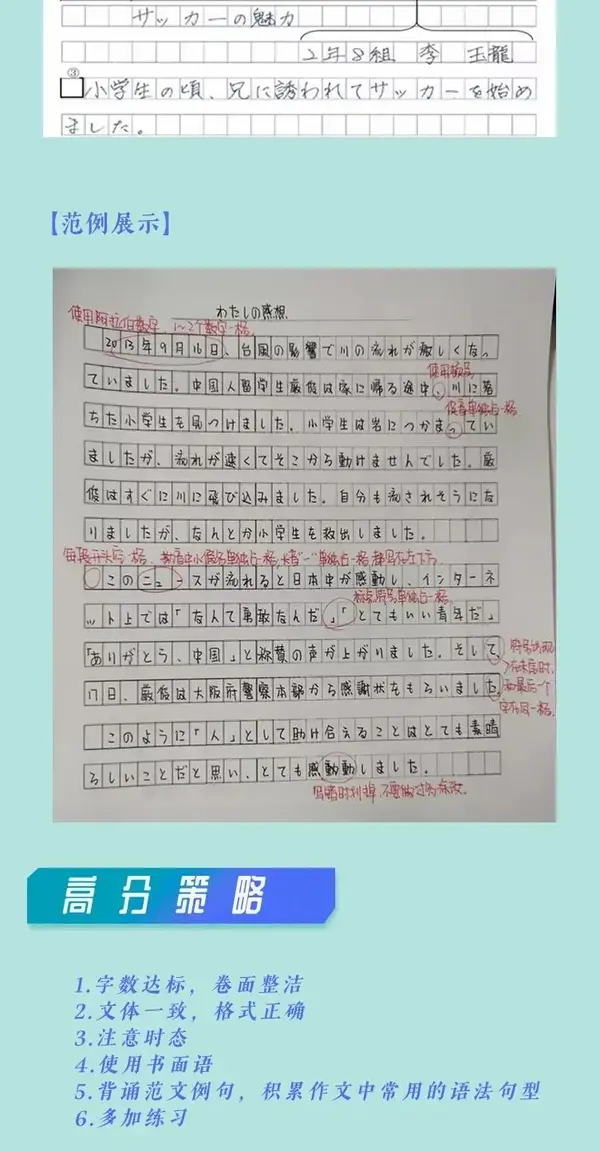 サッカーの魅力
2年8組 李 玉龍
③
小学生の頃、兄に誘われてサッカーを始め
ました。
【范例展示】
わたしの感想
使用阿拉伯数字，1~2个数字一格。
2013年9月16日、台風の影響で川の流れが激しくなっ
使用顿号
ていました。中国人留学生厳俊は家に帰る途中、川に落
促音单独占一格
ちた小学生を見つけました。小学生は岩につかまってい
ましたが、流れが速くてそこから動けませんでした。厳
俊はすぐに川に飛び込みました。自分も流されそうにな
りましたが、なんとか小学生を救出しました。
每段开头空一格，拗音中小假名单独占一格，长音"ー"单独占一格
このニュースが流れると日本中が感動し、インターネ
标点符号单独占一格
ット上では「なんて勇敢なんだ」「とてもいい青年だ」
「ありがとう、中国」と称賛の声が上がりました。そして、
17日、厳俊は大阪府警察本部から感謝状をもらいました。
このように「人」として助け合えることはとても素晴
らしいことだと思い、とても感動動しました。
高分策略
1.字数达标，卷面整洁
2.文体一致，格式正确
3.注意时态
4.使用书面语
5.背诵范文例句，积累作文中常用的语法句型
6.多加练习